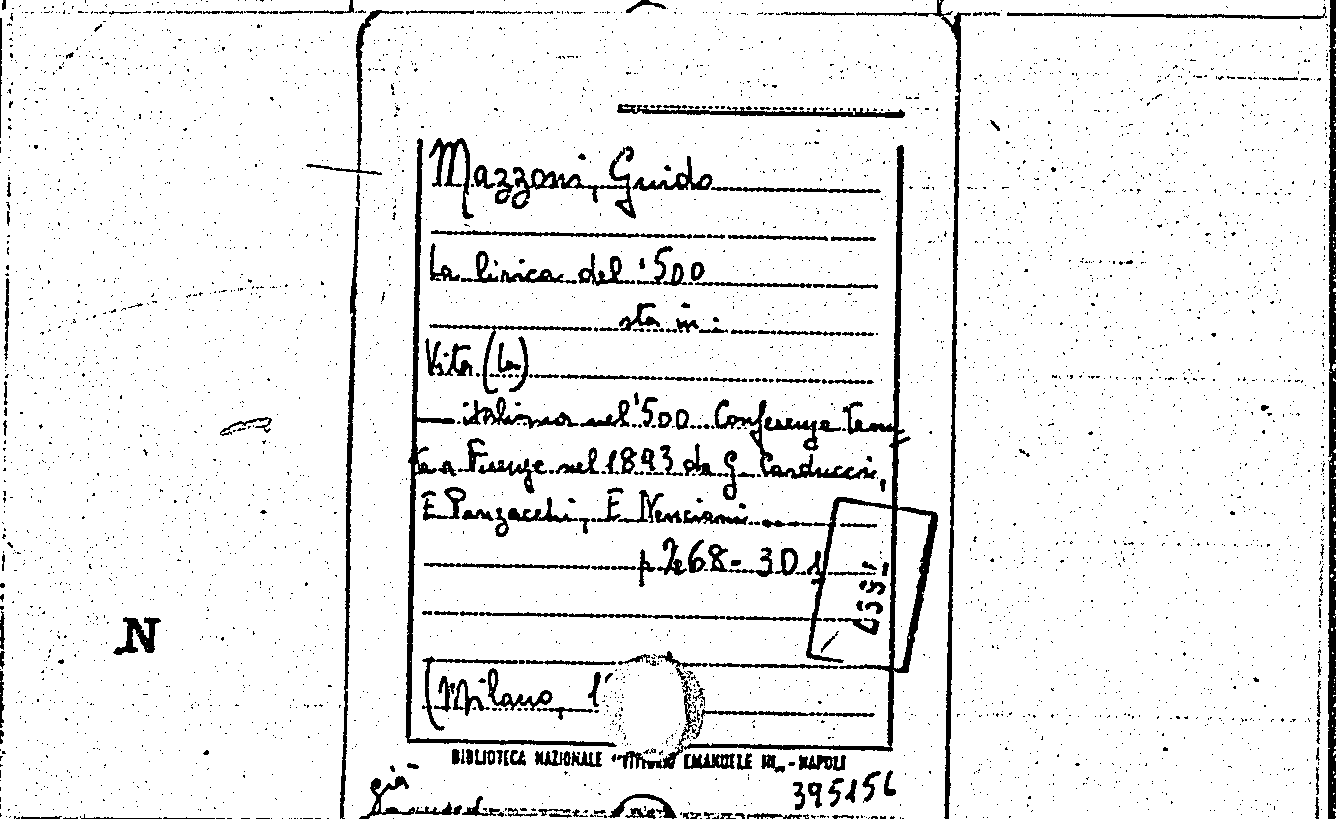 Mazzoni, Guido
La lirica del '500
sta in:
Vita (La)
— italiana nel '500. Conferenze tenu=
te a Firenze nel 1893 da G. Carducci,
E Panzacchi, E Nencioni...
p 268-301
(Milano, 1
BIBLIOTECA NAZIONALE "VITTORIO EMANUELE III" - NAPOLI
già
395156
N